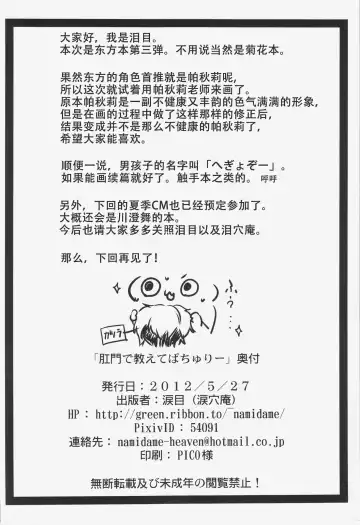 大家好，我是泪目。
本次是东方本第三弹。不用说当然是菊花本。
果然东方的角色首推就是帕秋莉呢，
所以这次就试着用帕秋莉老师来画了。
原本帕秋莉是一副不健康又丰韵的色气满满的形象，
但是在画的过程中做了这样那样的修正后，
结果变成并不是那么不健康的帕秋莉了，
希望大家能喜欢。
顺便一说，男孩子的名字叫「へぎょぞー」。
如果能画续篇就好了。触手本之类的。呼呼
另外，下回的夏季CM也已经预定参加了。
大概还会是川澄舞的本。
今后也请大家多多关照泪目以及泪穴庵。
那么，下回再见了！
ふぅ…
「肛門で教えてぱちゅりー」奥付
発行日：２０１２／５／２７
出版者：涙目（涙穴庵）
HP：http://green.ribbon.to/~namidame/
PixivID：54091
連絡先：namidame-heaven@hotmail.co.jp
印刷：PICO様
無断転載及び未成年の閲覧禁止！